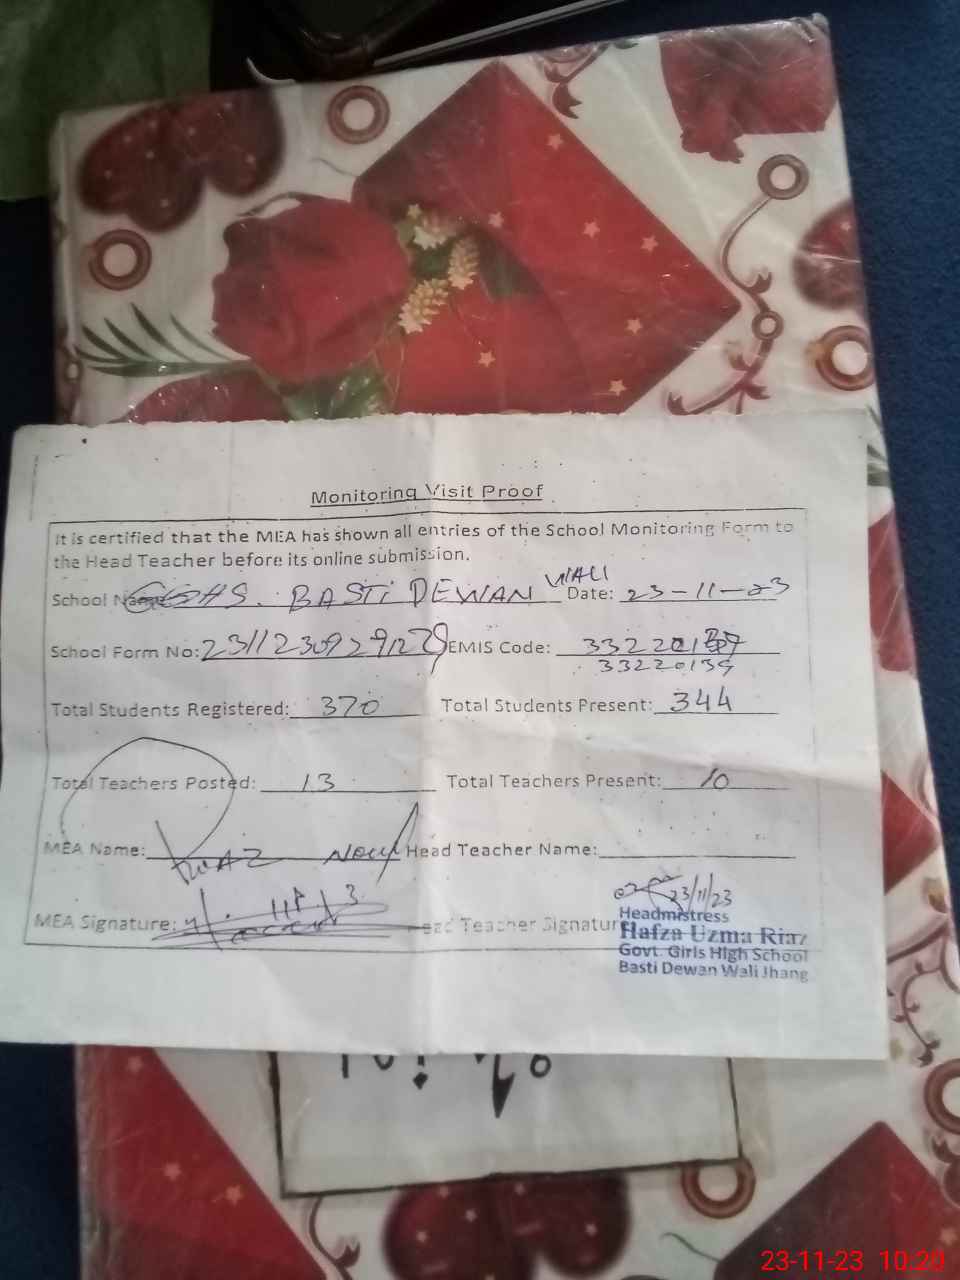 Monitoring Visit Proof
It is certified that the MEA has shown all entries of the School Monitoring Form to
the Head Teacher before its online submission.
School Name: GGHS. BASTI DEWAN WALI Date: 23-11-23
School Form No: EMIS Code:
33220139
Total Students Registered: 370 Total Students Present: 344
Total Teachers Posted: 13 Total Teachers Present: 10
MEA Name: Head Teacher Name:
MEA Signature: Head Teacher Signature
23/11/23
Headmistress
Hafza Uzma Riaz
Govt. Girls High School
Basti Dewan Wali Jhang
23-11-23 10:20